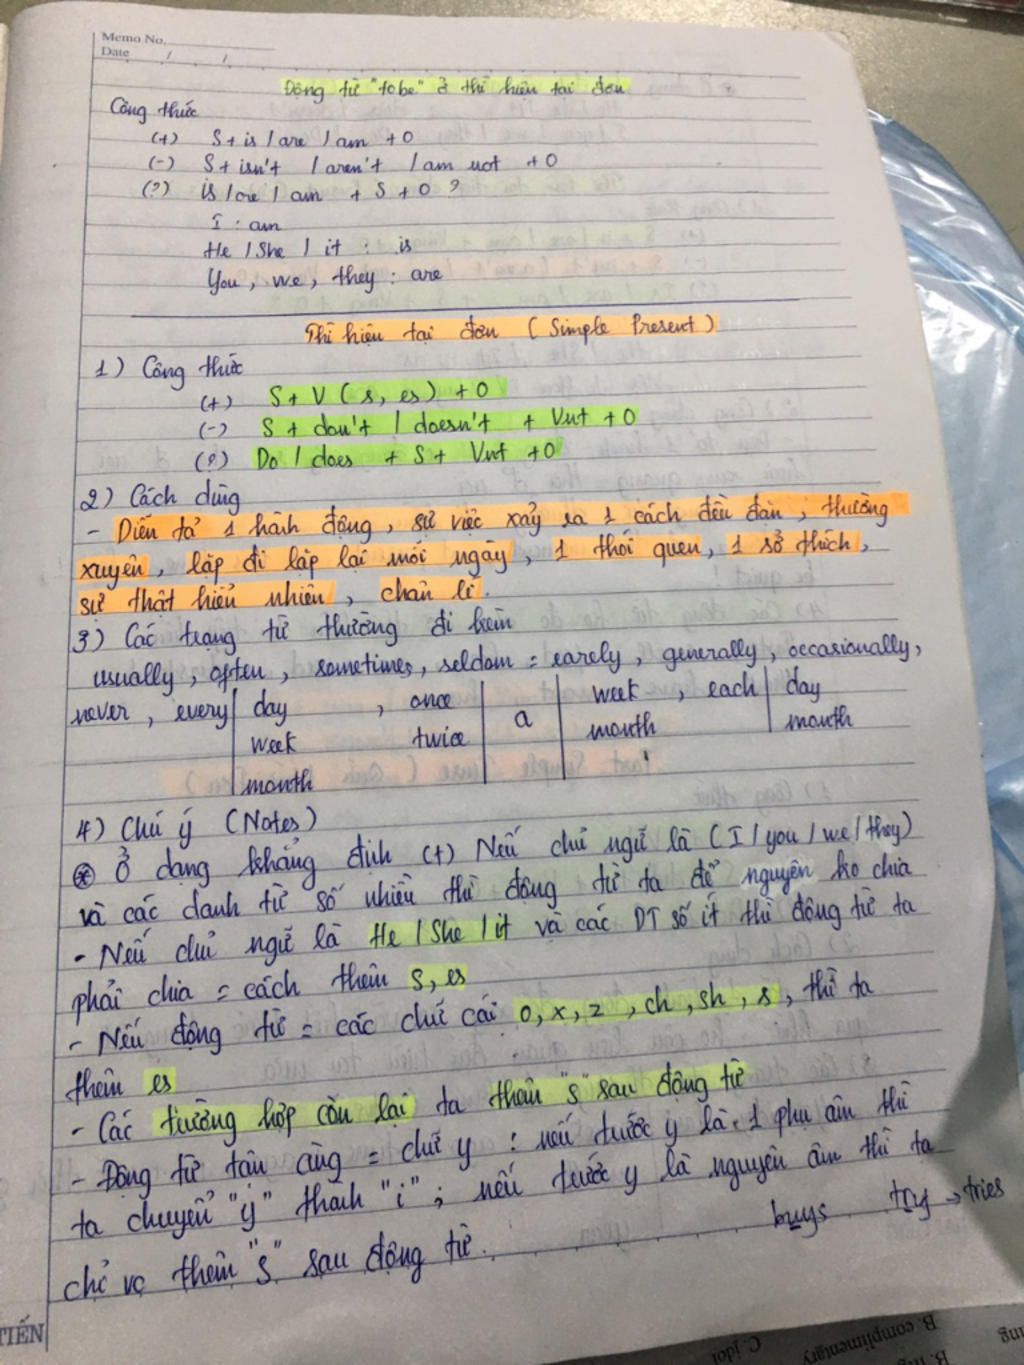 Memo No.
Date / /
Động từ "tobe" ở thì hiện tại đơn
Công thức
(+) S + is / are / am + O
(-) S + isn't / aren't / am not + O
(?) is / are / am + S + O ?
I : am
He / She / it : is
You, we, they : are
Thì hiện tại đơn (Simple Present)
1) Công thức
(+) S + V (s, es) + O
(-) S + don't / doesn't + Vnt + O
(?) Do / does + S + Vnt + O
2) Cách dùng
- Diễn tả 1 hành động, sự việc xảy ra 1 cách đều đặn, thường
xuyên, lặp đi lặp lại mỗi ngày, 1 thói quen, 1 sở thích,
sự thật hiển nhiên, chân lí.
3) Các trạng từ thường đi kèm
usually, often, sometimes, seldom = rarely, generally, occasionally,
never, every day , once a week , each day
week twice month month
month
4) Chú ý (Notes)
* Ở dạng khẳng định (+) Nếu chủ ngữ là (I / you / we / they)
và các danh từ số nhiều thì động từ ta để nguyên ko chia
- Nếu chủ ngữ là He / She / it và các DT số ít thì động từ ta
phải chia = cách thêm s, es
- Nếu động từ = các chữ cái o, x, z, ch, sh, s, thì ta
thêm es
- Các trường hợp còn lại ta thêm "s" sau động từ
- Động từ tận cùng = chữ y : nếu trước y là 1 phụ âm thì
ta chuyển "y" thành "i" ; nếu trước y là nguyên âm thì ta
chỉ vc thêm "s" sau động từ. buys try → tries
TIẾN
B. complimentary
C. idol